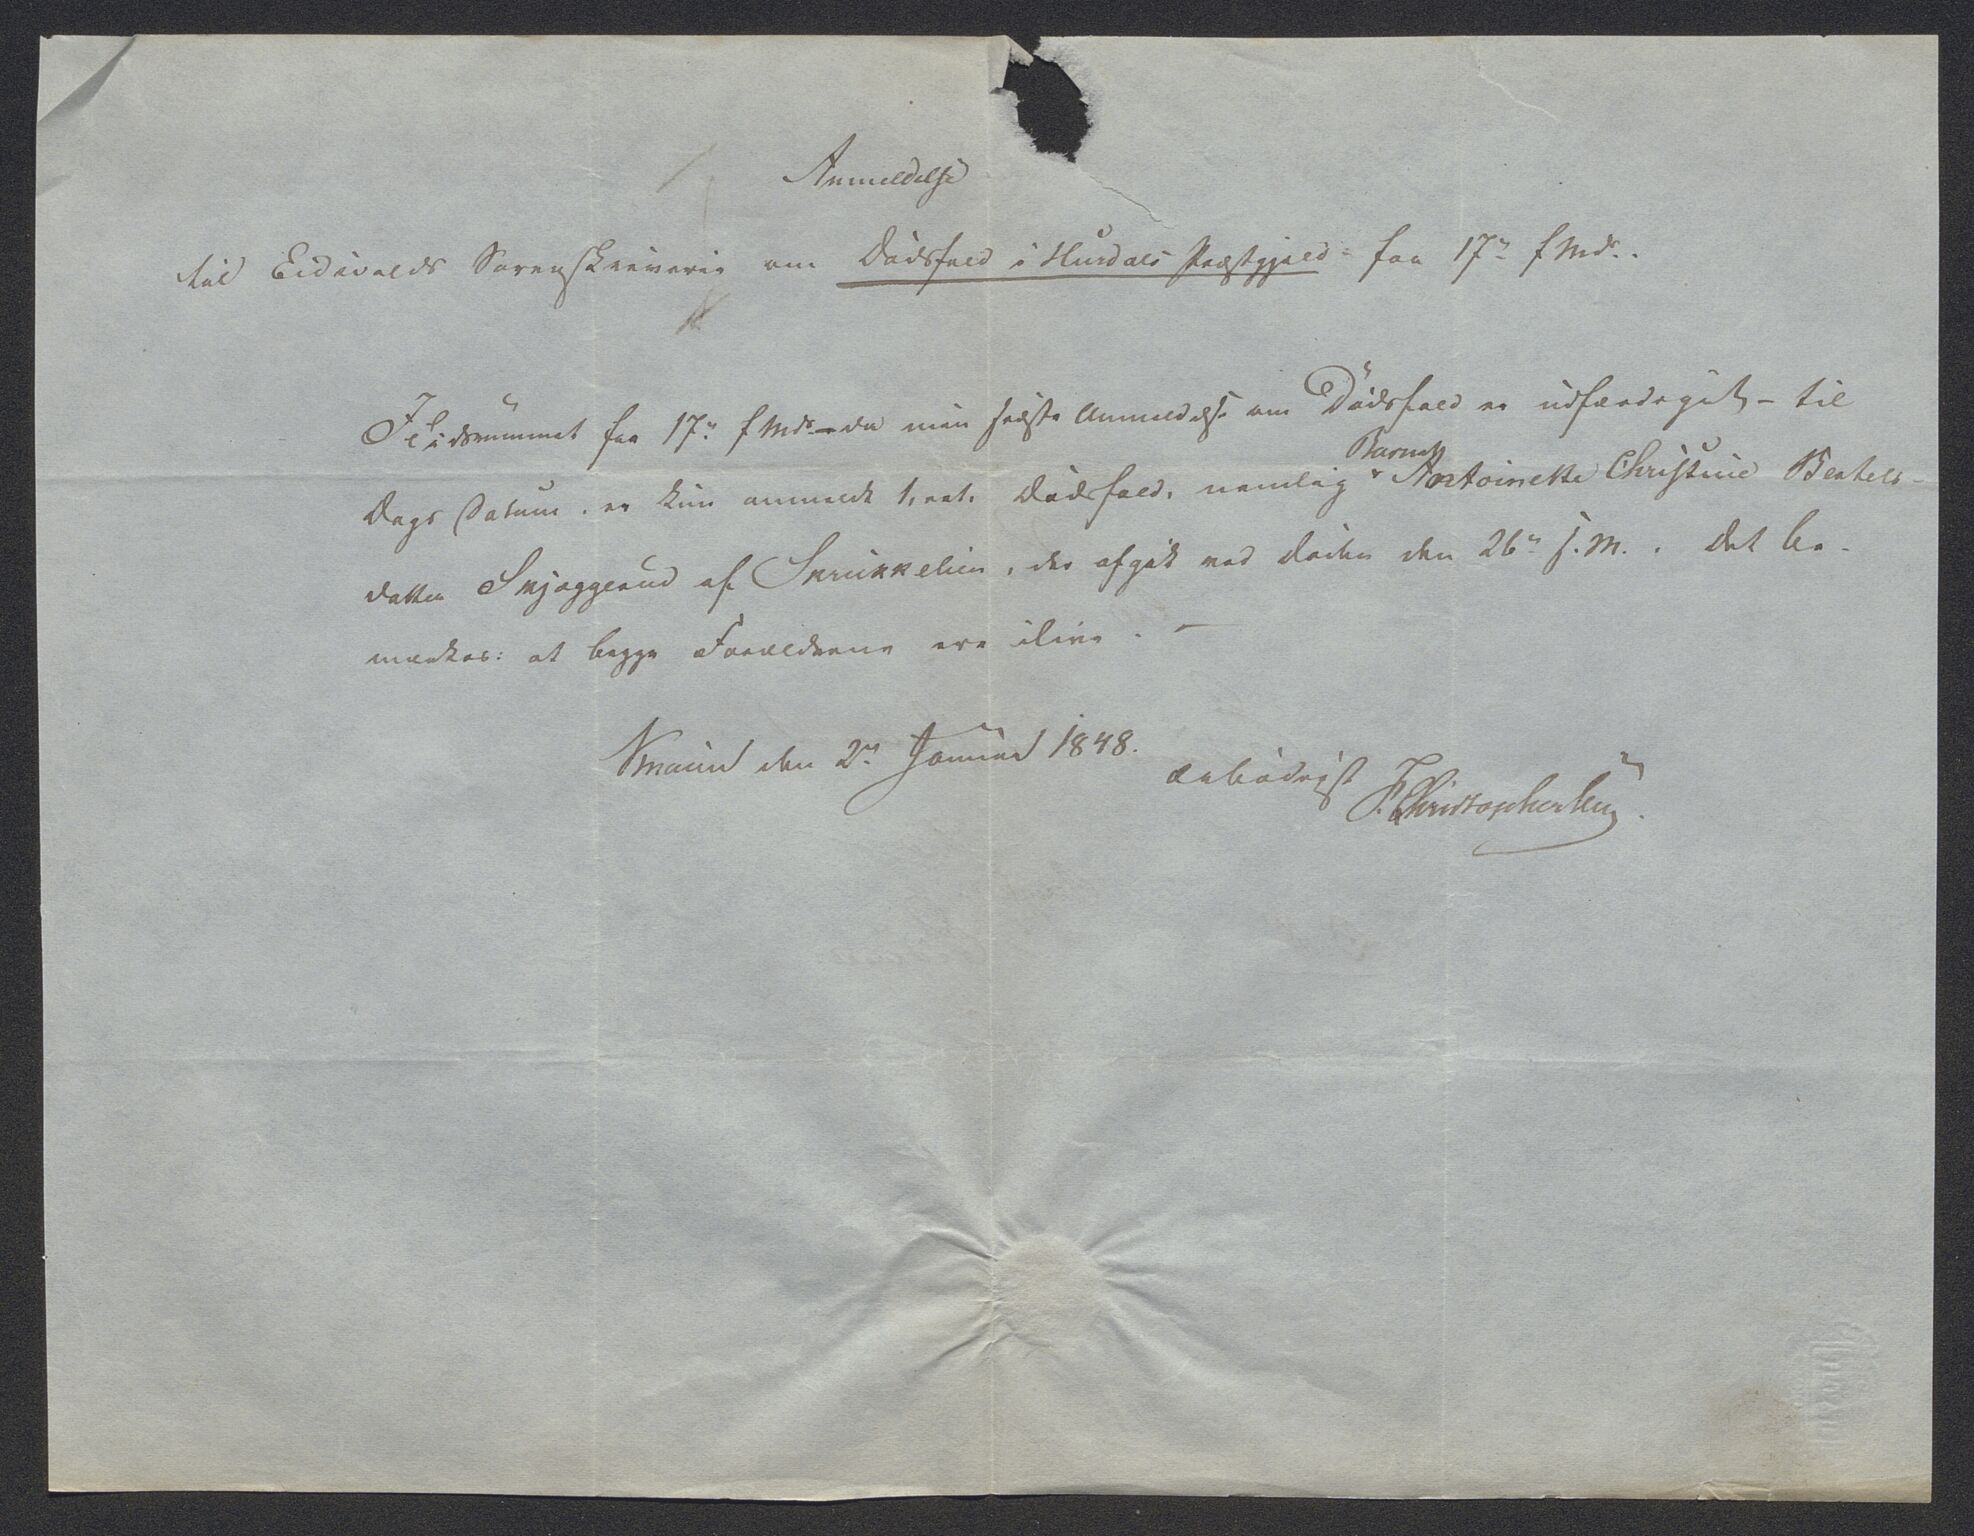 Anmeldelse
til Eidsvolds Sorenskriverie om Dödsfald i Hurdals Præstegjeld fra 17de f Mds.
I Tidsrummet fra 17de f Mds. da min sidste Anmeldelse om Dödsfald er udfærdiget - til
Barnet
Dags Datum, er kun anmeldt 1, eet, Dödsfald, nemlig Antoinette Christine Bertels-
datter Skjaggerud af Skrukkelien, der afgik ved döden den 26de f. M. Det be-
mærkes: at begge Forældrene ere ilive. -
den 2den Januar 1848.
ærbödigst
Christophersen